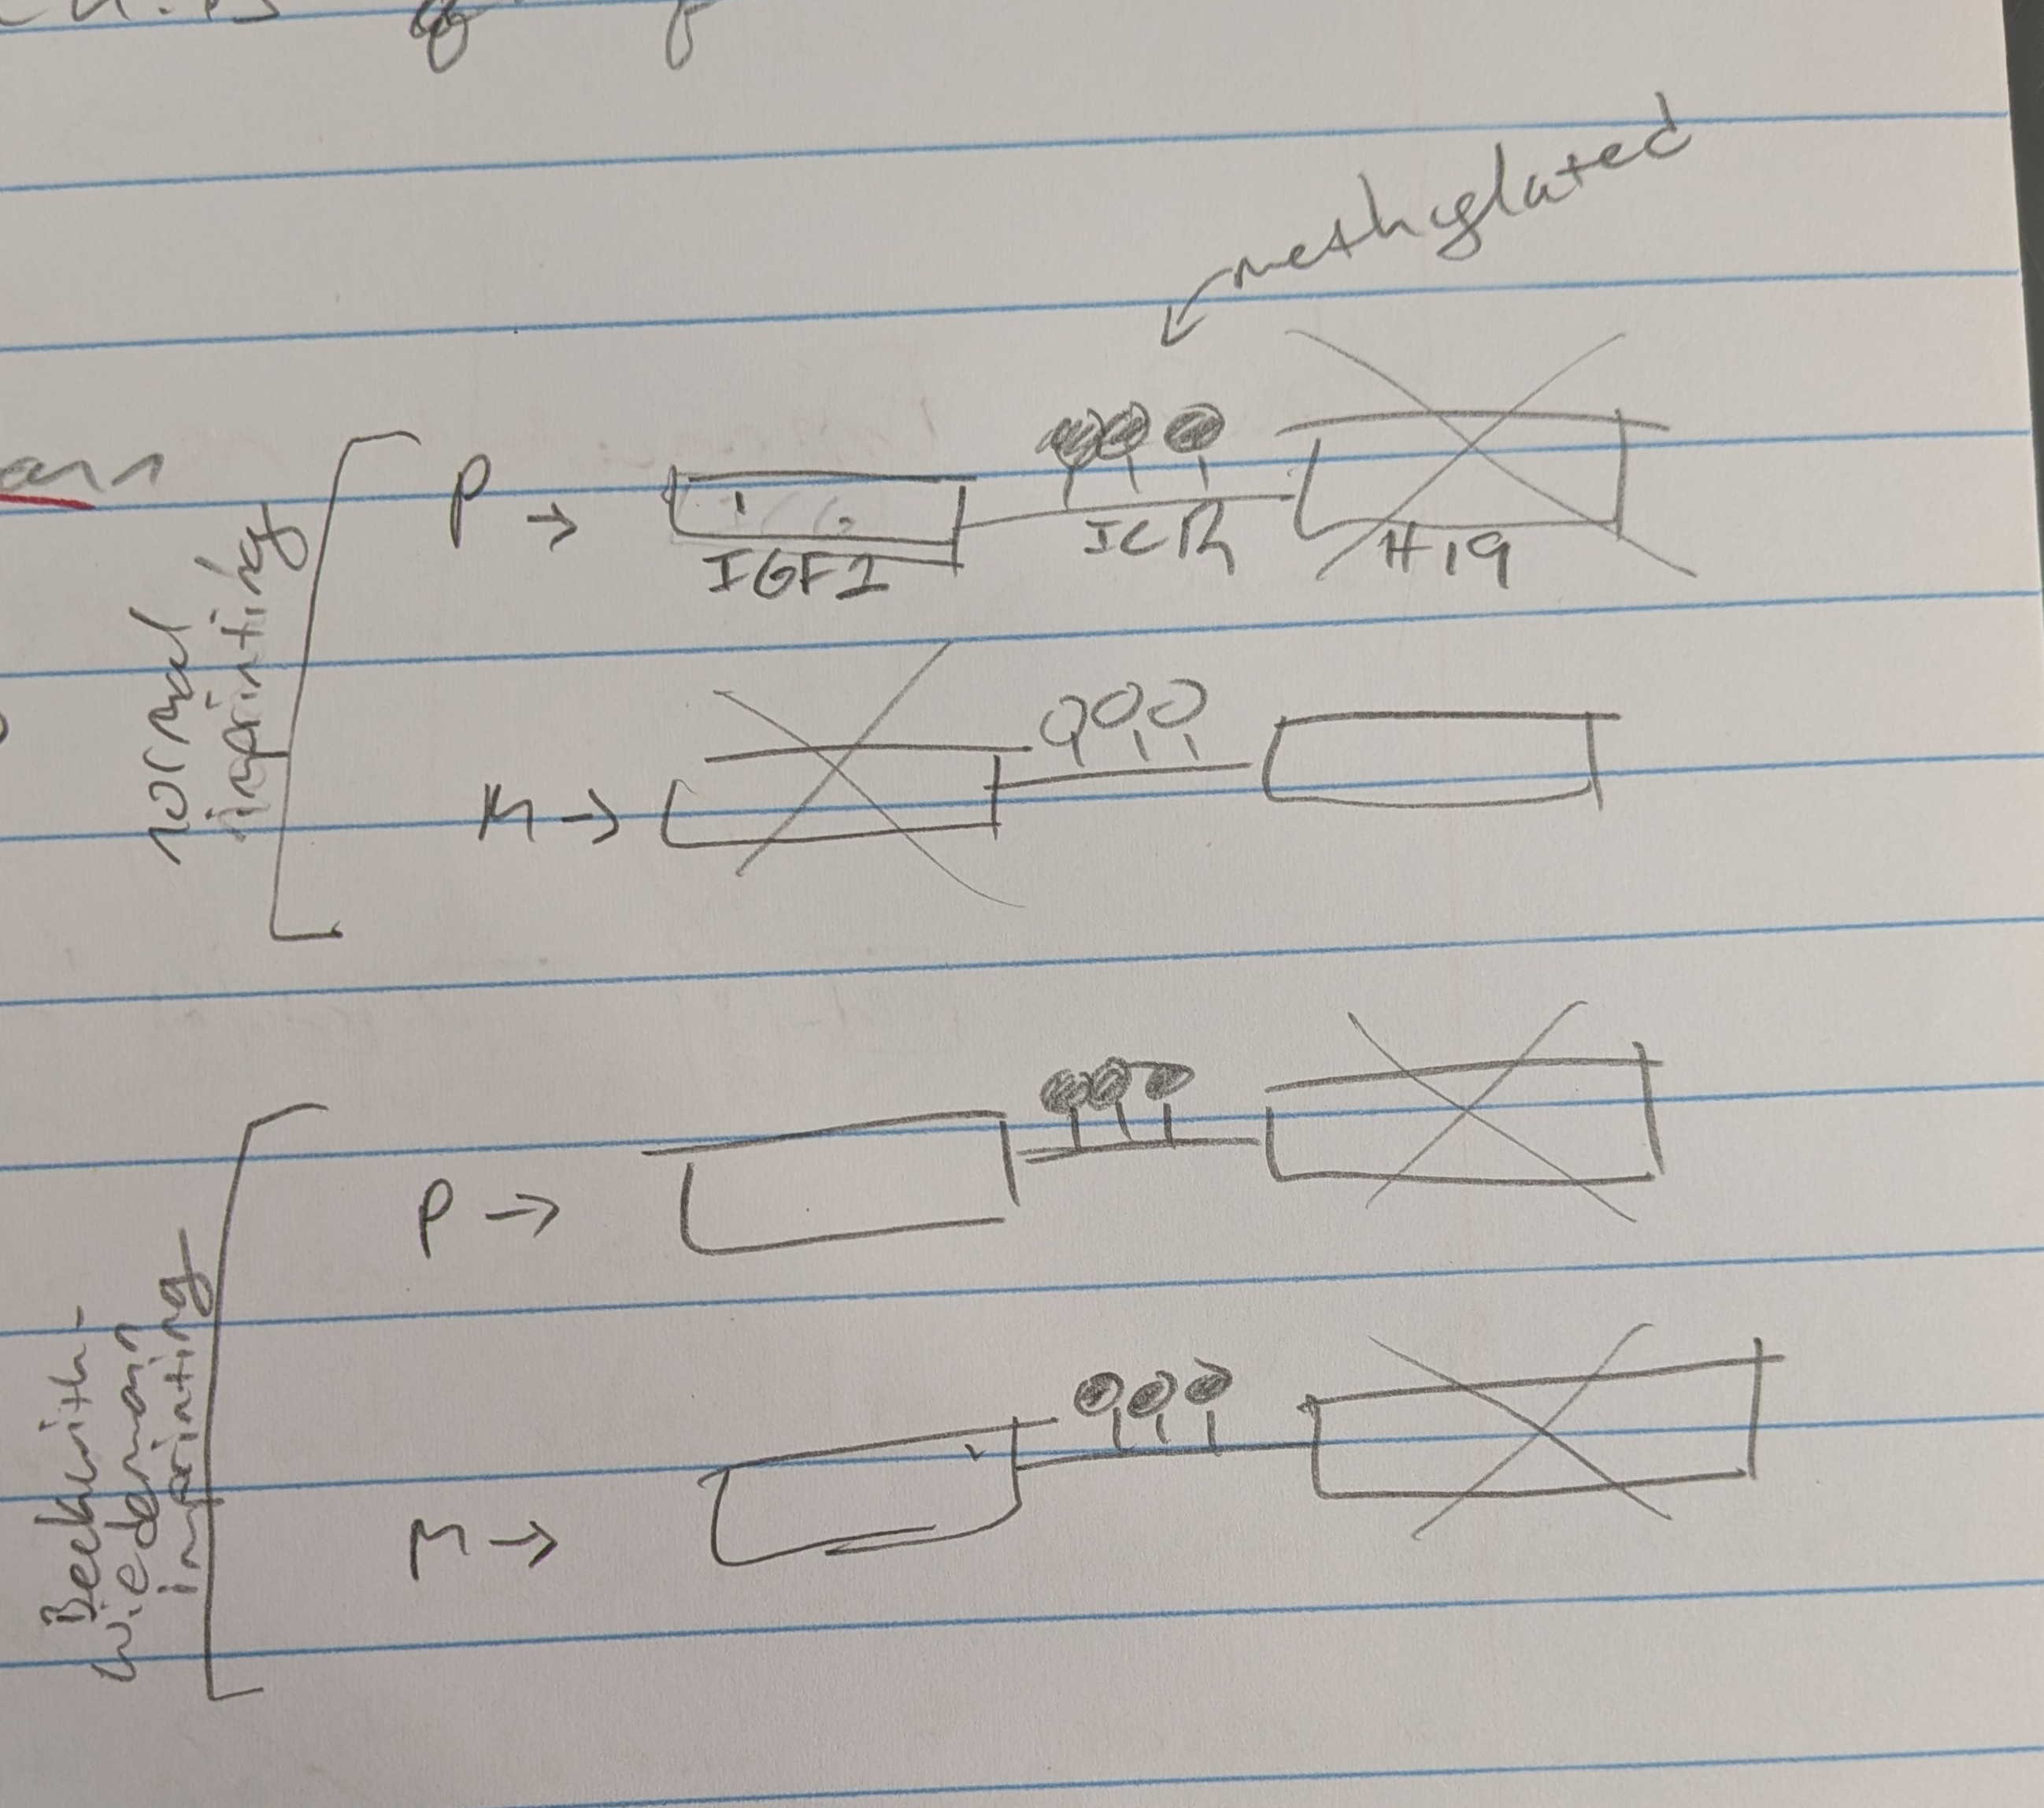 methylated
normal
imprinting
P →
IGF2
ICR
H19
M →
Beckwith-
Wiedemann
imprinting
P →
M →